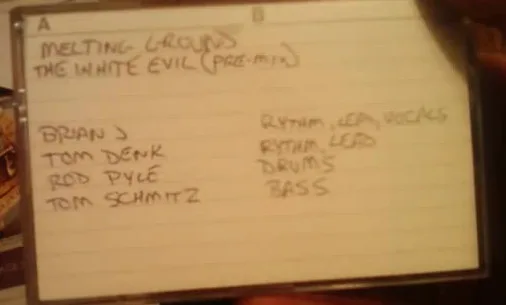 A B
MELTING GROUND
THE WHITE EVIL (PRE-MIX)
BRIAN J RYTHM, LEAD, VOCALS
TOM DENK RYTHM, LEAD
ROD PYLE DRUMS
TOM SCHMITZ BASS